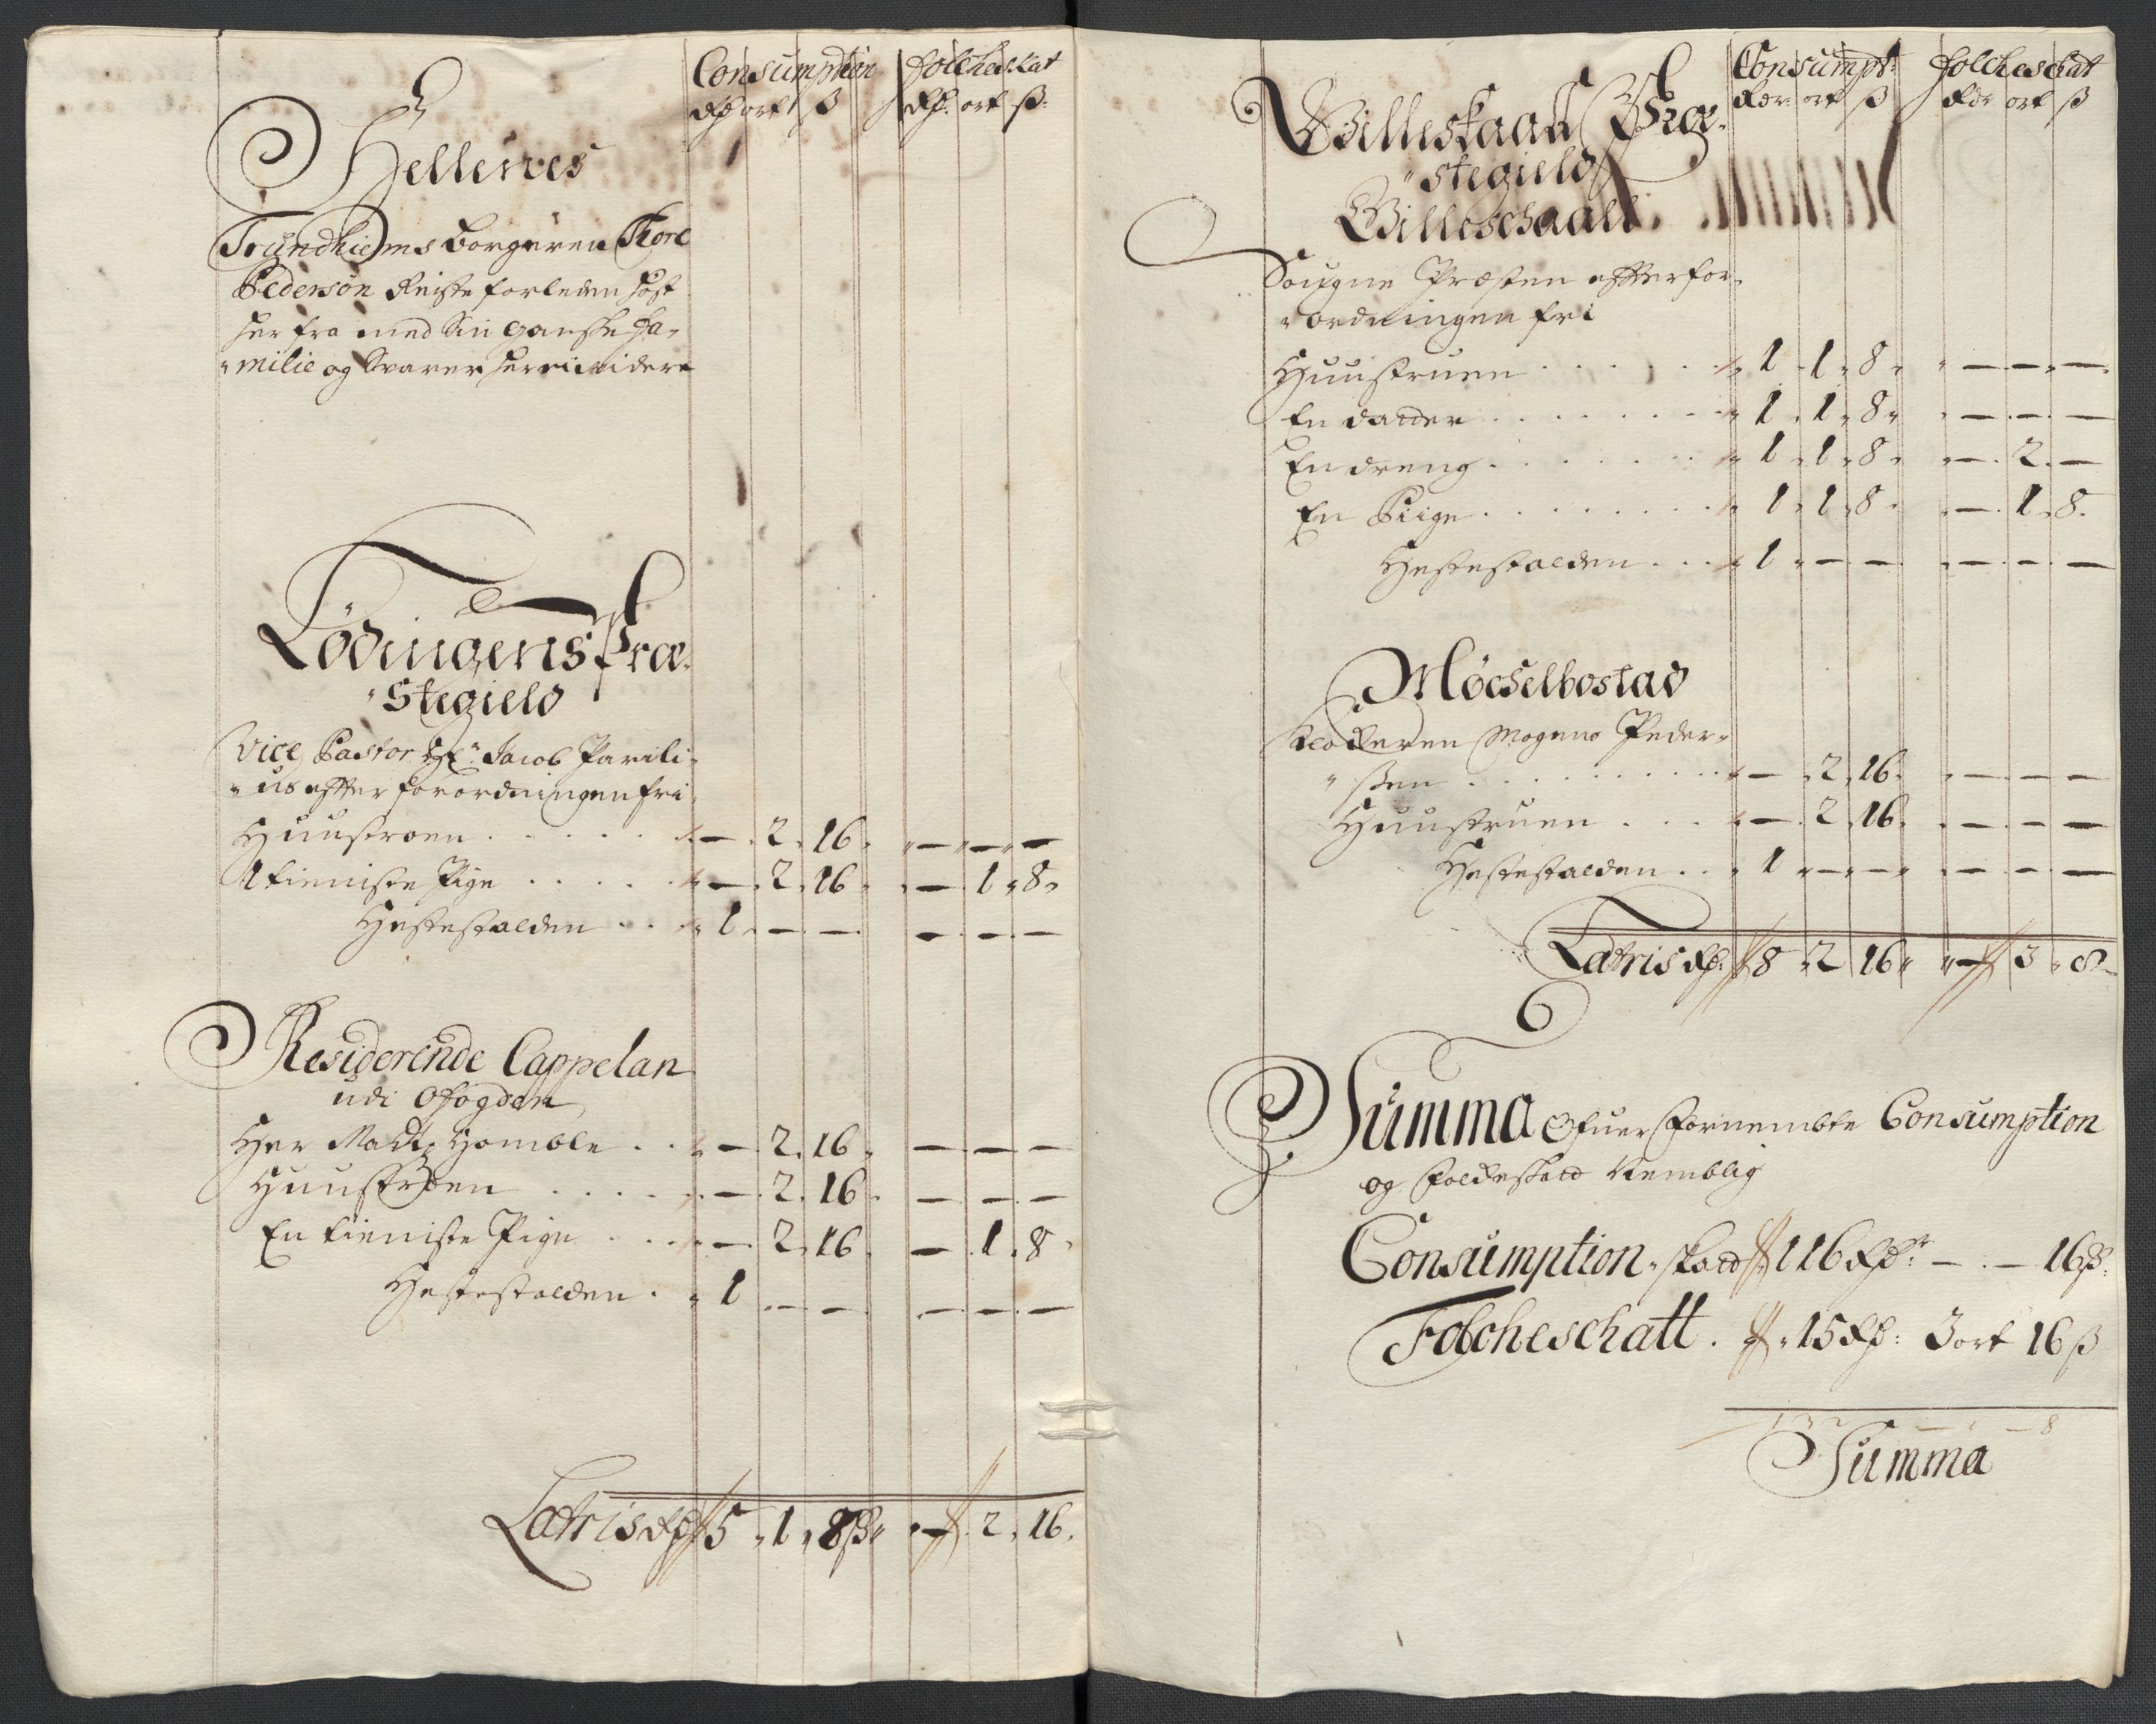 Consumption Folcheskat
Rdr ort ß Rdr: ort ß:
Hellenes
Trundhiems Borgeren Thore
Pedersøn Reiste forleden höst
her fra med Sin gandske Fa-
milie og Svarer her ei videre
Lödingens Præ-
stegield
Vice Pastor Hr. Jacob Parili-
us effter forordningen fri
Huustroen . . . . . — 2 16 — — —
1 tieniste Pige . . . . . — 2 16 — 1 8
Hestestalden . . . 1 — — — — —
Residerende Cappelan
udi Ofogden
Her Madtz Homble . . — 2 16 — — —
Huustroen . . . . — 2 16 — — —
En tieniste Pige . . . — 2 16 — 1 8
Hestestalden . 1 — — — — —
Latris Rdr 5 1 8 ß — 2 16
Consumpt: Folcheschat
Rdr: ort ß Rdr ort ß
Willeskaall Præ-
stegield
Willeschaall
Sougne Præsten effter for-
ordningen fri
Huustruen . . . . . . 1 1 8 — — —
En datter . . . . . . . 1 1 8 — — —
En dreng . . . . . . . 1 1 8 — 2 —
En Piige . . . . . . . . 1 1 8 — 1 8
Hestestalden . . . 1 — — — — —
Möcselbostad
Klockeren Mogens Peder-
ßen . . . . . . . . . . — 2 16 — — —
Huustruen . . . — 2 16 — — —
Hestestalden . . 1 — — — — —
Latris Rdr. 8 2 16 — 3 8
Summa Ofuer fornembte Consumption
og Folckeskatt Nemblig
Consumption-skatt 116 Rdr: — — 16 ß:
Folcheschatt . 15 Rdr: 3 ort 16 ß
132 — — 8
Summa